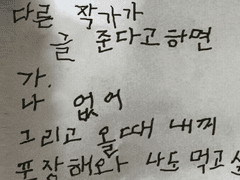 다른 작가가
글 준다고하면
가.
나 없어
그리고 올때 내꺼
포장해와 나도 먹고